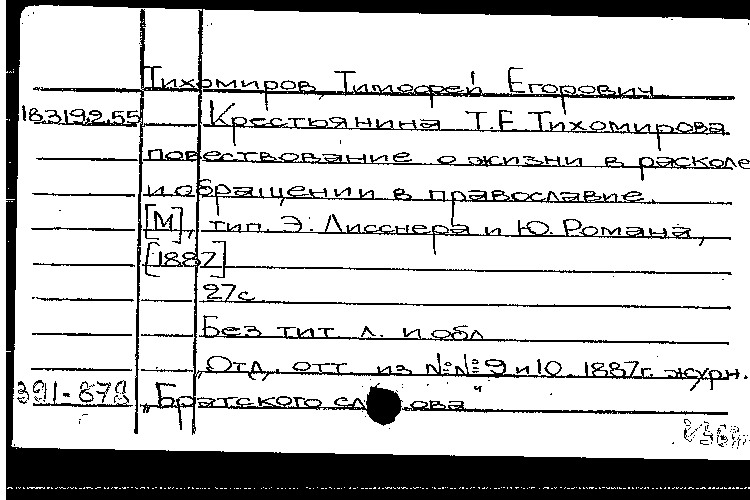 Тихомиров, Тимофей Егорович
183192.55 Крестьянина Т.Е.Тихомирова
повествование о жизни в расколе
и обращении в православие.
[М], тип. Э. Лисснера и Ю. Романа,
[1887]
27с
Без тит. л. и обл
"Отд. отт из №№ 9 и 10. 1887г. журн.
391-878 „Братского слова"